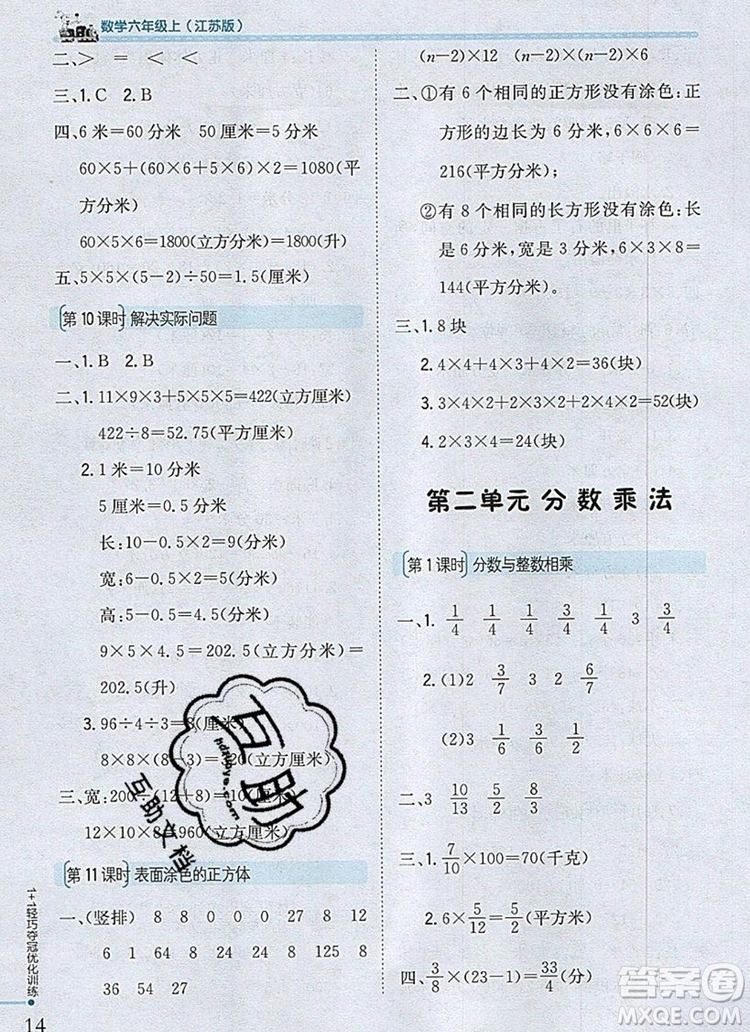 数学六年级上(江苏版)
二、＞ ＝ ＜ ＜
三、1. C 2. B
四、6 米=60 分米 50 厘米=5 分米
60×5+(60×6+5×6)×2=1080(平
方分米)
60×5×6=1800(立方分米)=1800(升)
五、5×5×(5-2)÷50=1.5(厘米)
第 10 课时 解决实际问题
一、1. B 2. B
二、1. 11×9×3+5×5×5=422(立方厘米)
422÷8=52.75(平方厘米)
2. 1 米=10 分米
5 厘米=0.5 分米
长:10-0.5×2=9(分米)
宽:6-0.5×2=5(分米)
高:5-0.5=4.5(分米)
9×5×4.5=202.5(立方分米)=
202.5(升)
3. 96÷4÷3=8(厘米)
8×8×(8-3)=320(立方厘米)
三、宽:200÷12-8=10(厘米)
12×10×8=960(立方厘米)
第 11 课时 表面涂色的正方体
一、(竖排) 8 8 0 0 0 27 8 12
6 1 64 8 24 24 8 125 8
36 54 27
(n-2)×12 (n-2)×(n-2)×6
二、①有 6 个相同的正方形没有涂色:正
方形的边长为 6 分米, 6×6×6=
216(平方分米)
②有 8 个相同的长方形没有涂色:长
是 6 分米,宽是 3 分米, 6×3×8=
144(平方分米)
三、1. 8 块
2. 4×4+4×3+4×2=36(块)
3. 4×2+2×3×2+2×2×2=28(块)
4. 2×3×4=24(块)
第二单元 分数乘法
第 1 课时 分数与整数相乘
一、1. 1/4 1/4 1/4 3/4 1/4 3 3/4
2. (1)2 3/7 3 2 6/7
(2)3 1/2 1/2 1/2 3/2
二、3 10/13 5/2 2/5
三、1. 7/10×100=70(千克)
2. 6×5/12=5/2(平方米)
四、3/8×(23-1)=33/4(分)
1+1轻巧夺冠优化训练
14
互助
hdzuoye.com
互助文档
答案圈
MXQE.COM